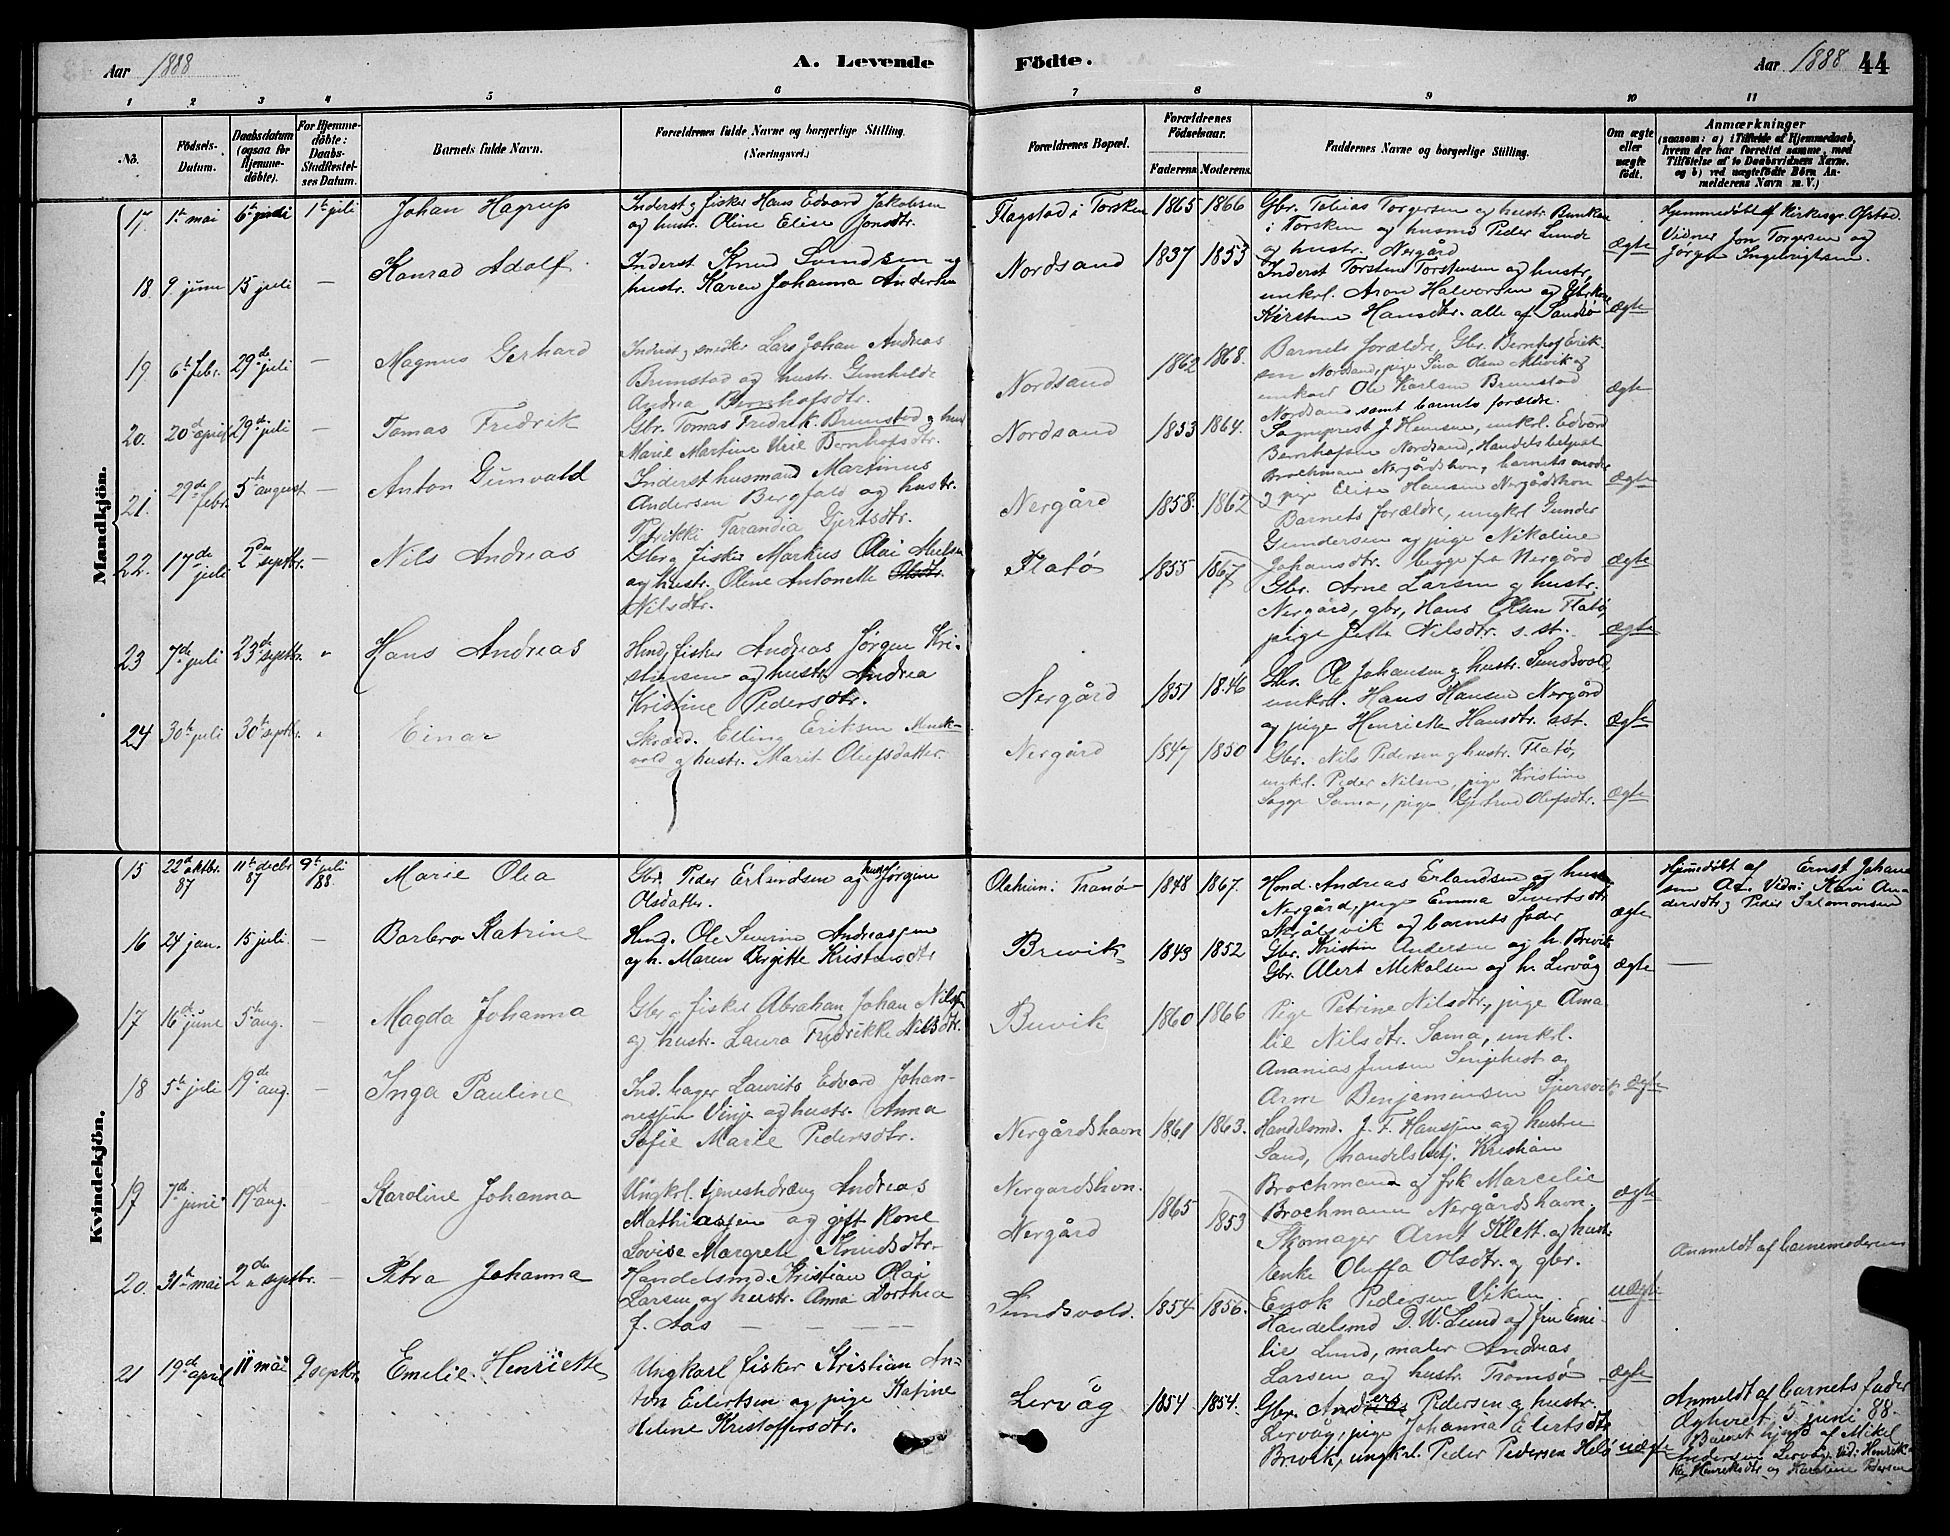 Aar 1888
A. Levende
Födte.
Aar 1888 44
1 2 3 4 5 6 7 8 9 10 11
No.
Födsels-Datum.
Daabsdatum (ogsaa for Hjemme-döbte).
For Hjemme-döbte: Daabs-Stadfæstel-ses Datum.
Barnets fulde Navn.
Forældrenes fulde Navne og borgerlige Stilling.
(Næringsvei.)
Forældrenes Bopæl.
Forældrenes Födselsaar.
Faderens. Moderens.
Faddernes Navne og borgerlige Stilling.
Om ægte eller uægte födt.
Anmærkninger
(saasom: a) i Tilfælde af Hjemmedaab,
hvem der har forrettet samme, med
Tilföielse af to Daabsvidners Navne.
og b) ved uægtefödte Börn An-
melderens Navn m. V.)
Mandkjön.
17 1te mai 6te juni 1te juli Johan Hagrup
Inderst og fisker Hans Edvard Jakobsen
og hustr. Oline Elise Jonsdtr.
Flagstad i Torsken 1865 1866
Gbr. Tobias Torgersen og hustr. Bunken
i Torsken og husmd Peder Lunde
og hustr. Nergård
ægte
Hjemmedøbt af kirkesgr. Ørstad.
Vidner Jon Torgersen og
Jørgen Ingebrigtsen.
18. 9. juni 15 juli — Konrad Adolf
Inderst Knud Svendsen og
hustr. Karen Johanna Andersen
Nordsand 1837 1853
Inderst Torsten Torstensen og hustr,
unkrl. Aron Halvorsen og
Kirstine Hansdtr. alle af Sandsø
Ægte
19 6te febr. 29de juli — Magnus Gerhard
Inderst og snedker Lars Johan Andreas
Brunstad og hustr. Gunhilde
Andrea Bernhofsdtr.
Nordsand 1862 1868.
Barnets forældre, Gbr. Bernhof Erik-
sen Nordsand, pige Sina Olsen
unkarl Ole Karlsen Brunstad
Nordsand samt barnets forældre.
ægte
20. 20de april 29de juli — Tomas Fredrik
Gbr. Tomas Fredrik Brunstad og hustr
Marie Martine Bernhofsdtr.
Nordsand 1853 1864.
Sogneprest J. Hansen, unkrl. Edvard
Bernhofsen Nordsand, Handelsbetjent
Brochmann Nergårdshvn, barnets moder
og pige Elise Hansen Nergårdshvn
ægte
21. 29de febr. 5te august — Anton Gunvald
Inderst husmand Martinus
Andersen Bergfald og hustr.
Petrikke Tarandia Gjertsdtr.
Nergård 1858. 1862
Barnets forældre, ungkrl Gunder
Gundersen og pige Nikoline
Johansdtr. begge fra Nergård
ægte
22. 17de juli 2den septbr. — Nils Andreas
Gbr og fisker Markus Olai
og hustr. Oline Antonette Olsdtr.
Nilsdtr.
Flatø 1855 1867
Gbr. Arne Larsen og hustr.
Nergård, gbr. Hans Olsen Flatø,
pige Jette Nilsdtr. s. st.
ægte
23 7de juli 23de septbr. " Hans Andreas
Hmd, fisker Andreas Jørgen Kri-
stensen og hustr. Andrea
Kristine Pedersdtr.
Nergård 1851 1846
Gbr. Ole Johansen og hustr. Sundsvold,
unkrl. Hans Hansen Nergård
og pige Henriette Hansdtr. ast.
ægte
24 30te juli 30te septbr. " Einar
Skrædd. Elling Eriksen Munk-
vold og hustr. Marit Olufsdatter.
Nergård 1847 1850
Gbr. Nils Pedersen og hustr. Flatø,
unkrl. Peder Nilsen, pige Kristine
Sagge Sama, pige Gjertrud Olufsdtr.
ægte
Kvindekjön.
15 22de oktbr. 87 11te decbr 87 9te juli 88. Marie Olea
Gbr. Peder Erlandsen og hustr Jørgine
Olsdatter.
Oleheim: Tranø 1848 1867.
Hmd. Andreas Erlandsen og hustr
Nergård, pige Emma Sivertsdtr
og barnets fader
ægte
Hjemdøbt af Ernst Johan-
sen Vidn: Kari An-
dersdtr og Peder Salomonsen
16 24 jan. 15 juli. — Barbro Katrine
Hmd. Ole Severin Andreassen
og h. Maren Birgitte Kristensdtr
Brevik 1843 1852
Gbr. Kristen Andersen og h. Brevik
Gbr. Alert Mikalsen og h. Lervåg
ægte —
17 16de june 5te aug. — Magda Johanna
Gbr og fisker Abraham Johan Nilsen
og hustr. Laura Fredrikke Nilsdtr.
Buvik 1860 1866
Pige Petrine Nilsdtr., pige Ama-
lie Nilsdtr. Sama, unkrl.
Ananias Jensen og
Arne Benjaminsen
ægte
18 5te juli 19de aug. — Inga Pauline
Ind. bager Laurits Edvard Johan-
nessen Vinje og hustr. Anna
Sofie Marie Pedersdtr.
Nergårdshavn 1861 1863.
Handelsmd. J. F. Hanssen og hustru
Sand, handelsbetj. Kristian
Brochmann og frk Marcelie
Brochmann Nergårdshavn.
ægte
19 7de juni 19de aug. — Karoline Johanna
Ungkrl. tjenestedreng Andreas
Mathiassen og gift kone
Lovise Margrete Knudsdtr.
Nergårdshvn.
Nergård 1865 1853
Skomager Arnt Klett og hustr.
Enke Oluffa Olsdtr. og gbr.
Enok Pedersen Viken.
uægte
Anmeldt af barnemoderen
20. 31te mai 2den septbr. — Petra Johanna
Handelsmd. Kristian Olai
Larsen og hustr. Anna Dorthea
f. Aas — — — —
Sundsvold. 1854 1856.
Handelsmd D. W. Lund og fru Emi-
lie Lund, maler Andreas
Larsen og hustr. Tromsø
ægte
21 19de april 11 mai 9 septbr. Emelie Henriette
Ungkarl fisker Kristian An-
ton Eilertsen og pige Katrine
Helene Kristoffersdtr.
Lervåg 1854 1854.
Gbr. Anders Pedersen og hustr.
Lervåg, pige Johanna Eilertsdtr
Brevik, ungkrl. Peder Pedersen
uægte
Anmeldt af barnets fader
5 juni 88.
Barnet hjmd af Mikal
Andersen Lervåg. Vid: Henrik-
ke Henriksdtr og Karoline Pedersen